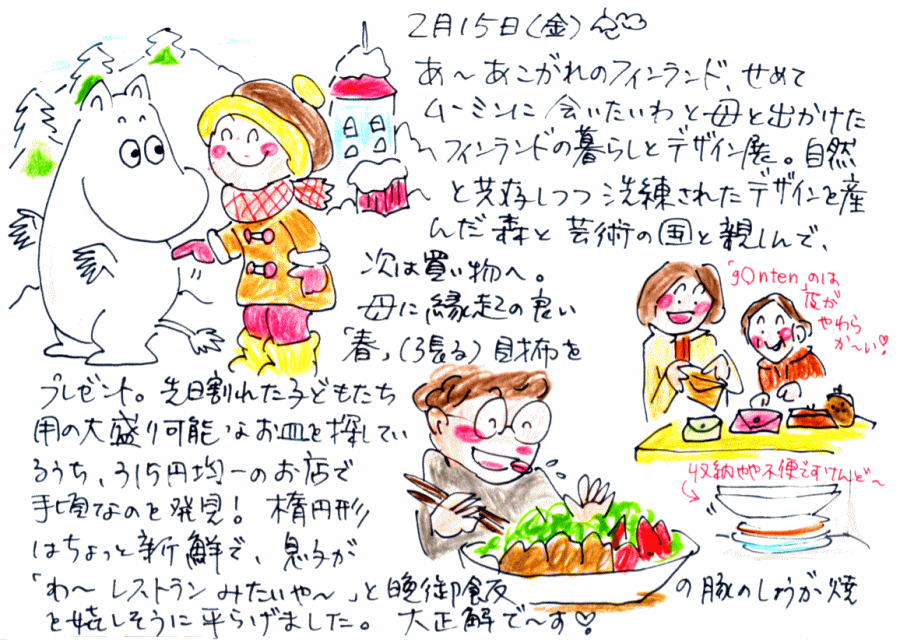 2月15日(金)
あ〜あこがれのフィンランド、せめて
ムーミンに会いたいわと母と出かけた
フィンランドの暮らしとデザイン展。自然
と共存しつつ洗練されたデザインを産
んだ森と芸術の国と親しんで、
次は買い物へ。
母に縁起の良い
「春」(張る)財布を
プレゼント。先日割れた子どもたち
用の大盛り可能なお皿を探してい
るうち、315円均一のお店で
手頃なのを発見！楕円形
はちょっと新鮮で、息子が
「わ〜レストランみたいや〜」と晩御飯の豚のしょうが焼
を嬉しそうに平らげました。大正解で〜す♡
「gOnten」のは
皮が
やわら
か〜い♡
収納やや不便ですけんど〜